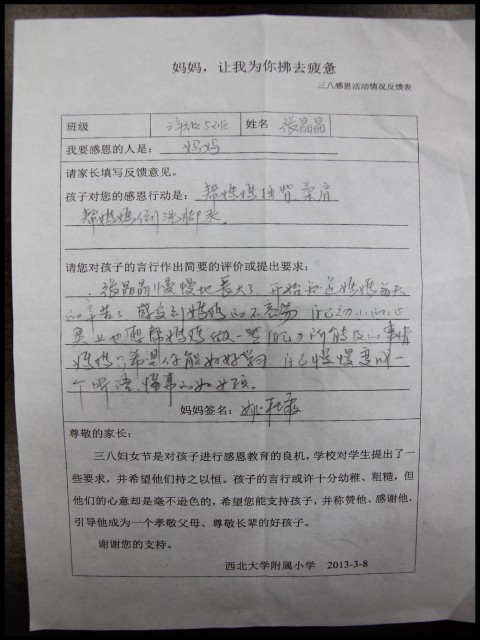 妈妈，让我为你拂去疲惫
三八感恩活动情况反馈表
班级 3年级5班 姓名 张晶晶
我要感恩的人是：妈妈
请家长填写反馈意见。
孩子对您的感恩行动是：帮妈妈捶背 柔肩
帮妈妈倒洗脚水。
请您对孩子的言行作出简要的评价或提出要求：
张晶晶慢慢地长大了，开始知道妈妈每天
的辛苦了，感受到妈妈的不容易 自己幼小的心
灵上也想帮妈妈做一些自己力所能及的事情
妈妈希望你能好好学习 自己慢慢变成一
个听话，懂事的好女孩。
妈妈签名：
尊敬的家长：
三八妇女节是对孩子进行感恩教育的良机，学校对学生提出了一
些要求，并希望他们持之以恒。孩子的言行或许十分幼稚、粗糙，但
他们的心意却是毫不逊色的，希望您能支持孩子，并称赞他、感谢他，
引导他成为一个孝敬父母、尊敬长辈的好孩子。
谢谢您的支持。
西北大学附属小学 2013-3-8